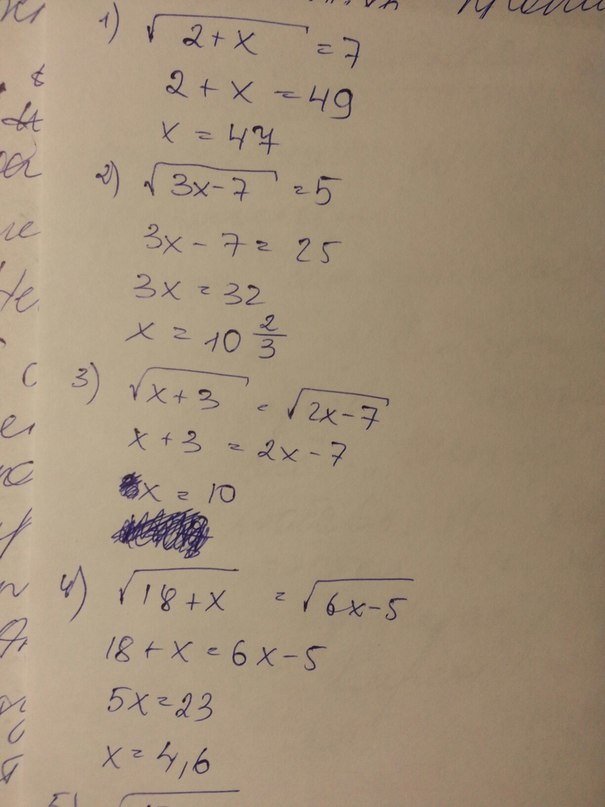 1) √(2+x) = 7
2 + x = 49
x = 47
2) √(3x-7) = 5
3x - 7 = 25
3x = 32
x = 10 2/3
3) √(x+3) = √(2x-7)
x + 3 = 2x - 7
x = 10
4) √(18+x) = √(6x-5)
18 + x = 6x - 5
5x = 23
x = 4,6
5)